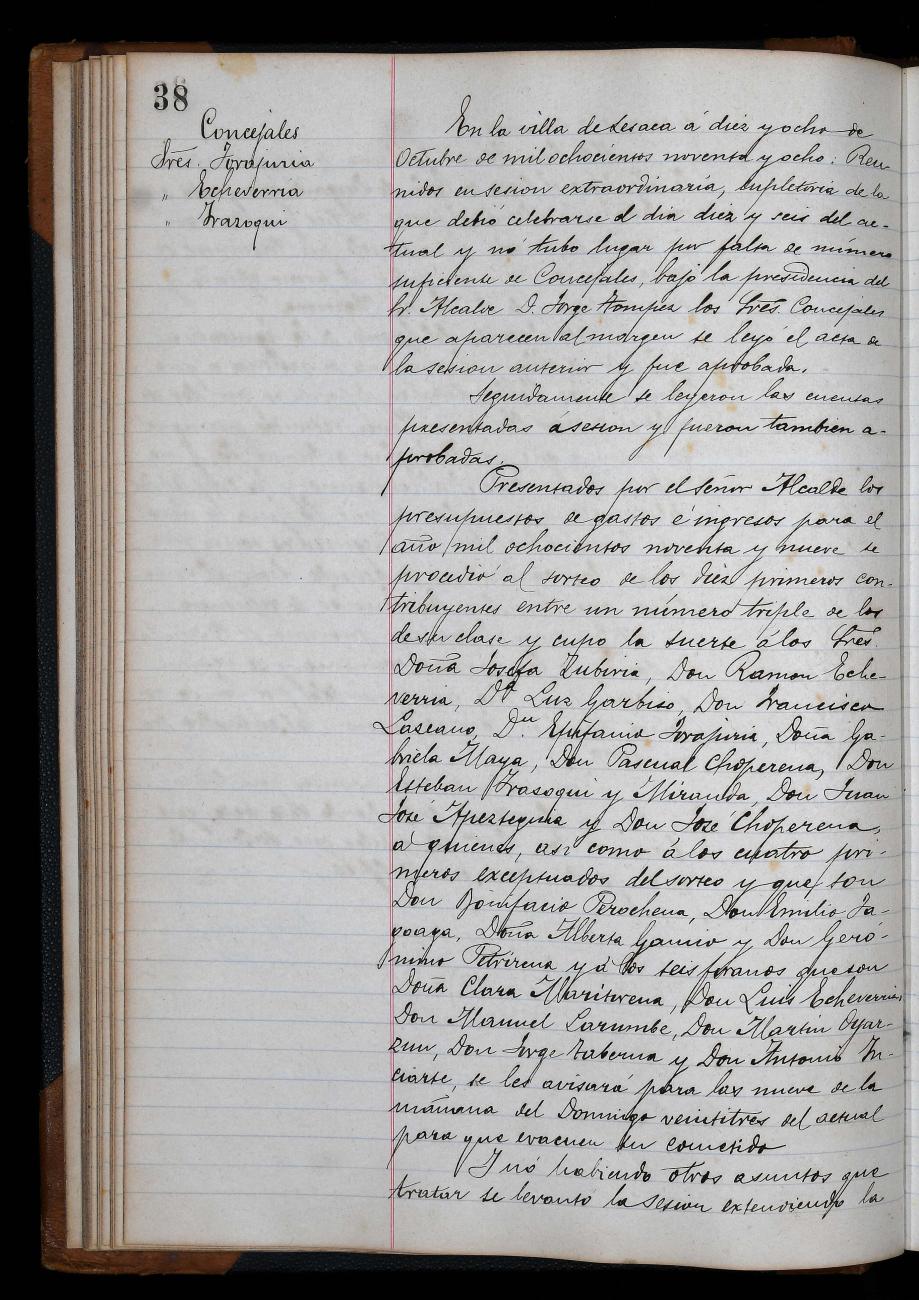 38
Concejales
Sres. Iorajuria
" Echeverria
" Irazoqui
En la villa de Lesaca á diez y ocho de
Octubre de mil ochocientos noventa y ocho: Reu-
nidos en sesion extraordinaria, supletoria de la
que debió celebrarse el dia diez y seis del ac-
tual y nó tubo lugar por falta de número
suficiente de Concejales, bajo la presidencia del
Sr. Alcalde D. Jorge Tompes los Sres. Concejales
que aparecen al margen se leyó el acta de
la sesion anterior y fue aprobada.
Seguidamente se leyeron las cuentas
presentadas á sesion y fueron tambien a-
probadas.
Presentados por el señor Alcalde los
presupuestos de gastos é ingresos para el
año mil ochocientos noventa y nueve se
procedió al sorteo de los diez primeros con-
tribuyentes entre un número triple de los
de su clase y cupo la suerte á los Sres.
Doña Josefa Zubiria, Don Ramon Eche-
verria, Dª Luz Garbiso, Don Francisco
Lascano, Dn. Epifanio Iorajuria, Doña Ga-
briela Maya, Don Pascual Choperena, Don
Esteban Irazoqui y Miranda, Don Juan
José Apezteguia y Don José Choperena,
á quienes, asi como á los cuatro pri-
meros exceptuados del sorteo y que son
Don Bonifacio Perochena, Don Emilio Ja-
goaga, Doña Alberta Gamio y Don Geró-
nimo Petrirena y á los seis foranos que son
Doña Clara Maritorena, Don Luis Echeverria,
Don Manuel Larumbe, Don Martin Oyar-
zun, Don Jorge Taberna y Don Antonio In-
ciarte, se les avisará para las nueve de la
mañana del Domingo veintitres del actual
para que evacuen su cometido
I nó habiendo otros asuntos que
tratar se levantó la sesion extendiendo la